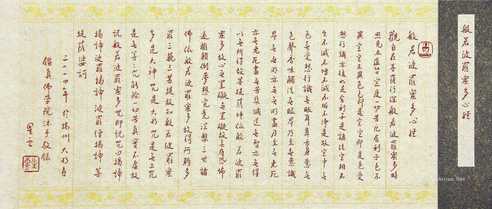 般若波羅蜜多心經
般若波羅蜜多心經
觀自在菩薩行深般若波羅蜜多時
照見五蘊皆空度一切苦厄舍利子色不
異空空不異色色即是空空即是色受
想行識亦復如是舍利子是諸法空相不
生不滅不垢不淨不增不減是故空中無
色無受想行識無眼耳鼻舌身意無
色聲香味觸法無眼界乃至無意識
界無無明亦無無明盡乃至無老死
亦無老死盡無苦集滅道無智亦無得
以無所得故菩提薩埵依般若波羅
蜜多故心無罣礙無罣礙故無有恐怖
遠離顛倒夢想究竟涅槃三世諸
佛依般若波羅蜜多故得阿耨多
羅三藐三菩提故知般若波羅蜜
多是大神咒是大明咒是無上咒
是無等等咒能除一切苦真實不虛故
說般若波羅蜜多咒即說咒曰
揭諦揭諦波羅揭諦波羅僧揭諦菩
提薩婆訶
年於揚州大明寺
鑑真佛學院沐手敬錄